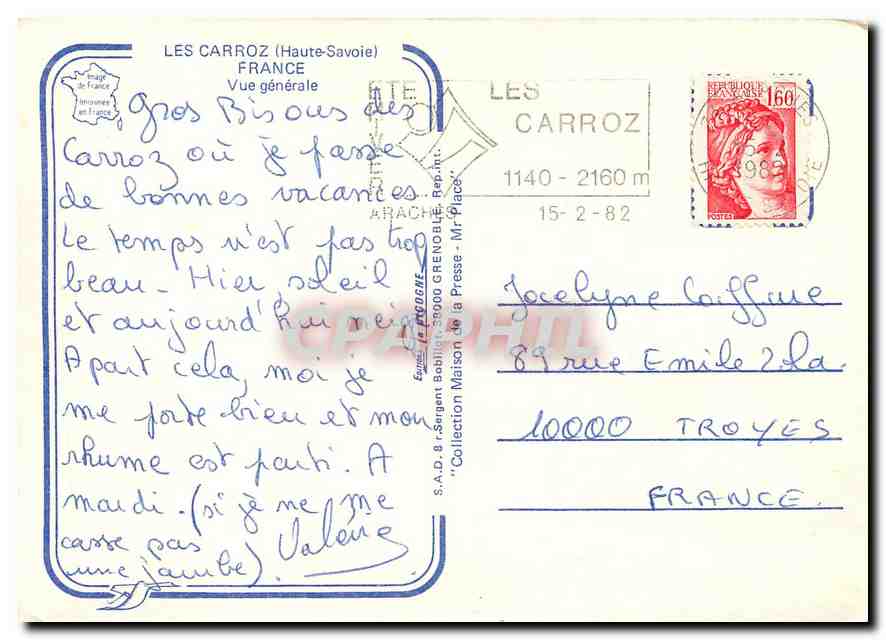 LES CARROZ (Haute-Savoie)
FRANCE
Vue générale
Image
de France
Imprimée
en France
Gros Bisous des
Carroz où je passe
de bonnes vacances
Le temps n'est pas trop
beau - Hier, soleil
et aujourd'hui neige
A part cela, moi je
me porte bien et mon
rhume est parti. A
mardi. (si je ne me
casse pas
une jambe). Valérie
S.A.D. 8 r. Sergent Bobillot. 38000 GRENOBLE Rep. int.
"Collection Maison de la Presse - Mr Place"
ETE
ARACHES
LES
CARROZ
1140 - 2160 m
15-2-82
REPUBLIQUE
FRANÇAISE
1,60
POSTES
1982
Jocelyne Coiffure
89 rue Emile Zola
10000 TROYES
FRANCE.
CPAPHIL